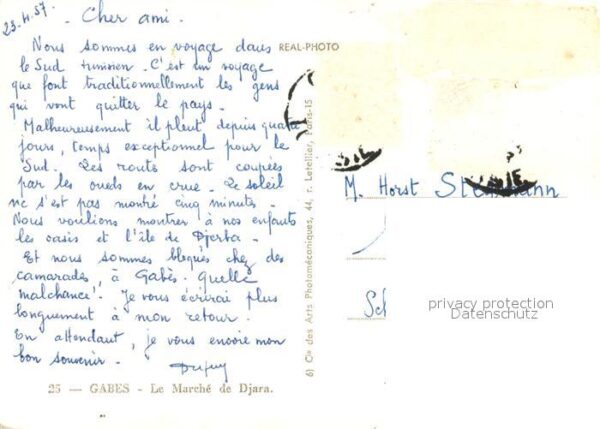 23.4.57
Cher ami.
Nous sommes en voyage dans
le Sud tunisien. C'est un voyage
que font traditionnellement les gens
qui vont quitter le pays.
Malheureusement il pleut depuis quatre
jours, temps exceptionnel pour le
Sud. Les routes sont coupées
par les oueds en crue. Le soleil
ne s'est pas montré cinq minutes.
Nous voulions montrer à nos enfants
les oasis et l'île de Djerba.
Et nous sommes bloqués chez des
camarades, à Gabès. Quelle
malchance! Je vous écrirai plus
longuement à mon retour.
En attendant, je vous envoie mon
bon souvenir.
25 — GABES - Le Marché de Djara.
REAL-PHOTO
6) Cie des Arts Photomécaniques, 44, r. Letellier, Paris-15
M. Horst
Sch
privacy protection
Datenschutz